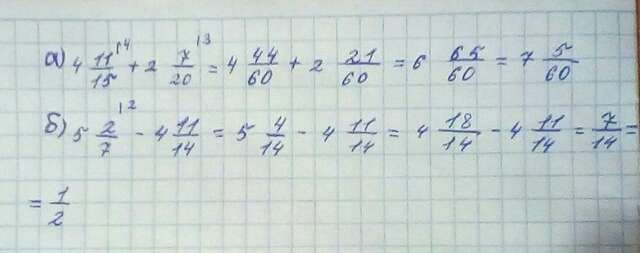 а) 4 11/15 |4 + 2 7/20 |3 = 4 44/60 + 2 21/60 = 6 65/60 = 7 5/60
б) 5 2/7 |2 - 4 11/14 = 5 4/14 - 4 11/14 = 4 18/14 - 4 11/14 = 7/14 =
= 1/2